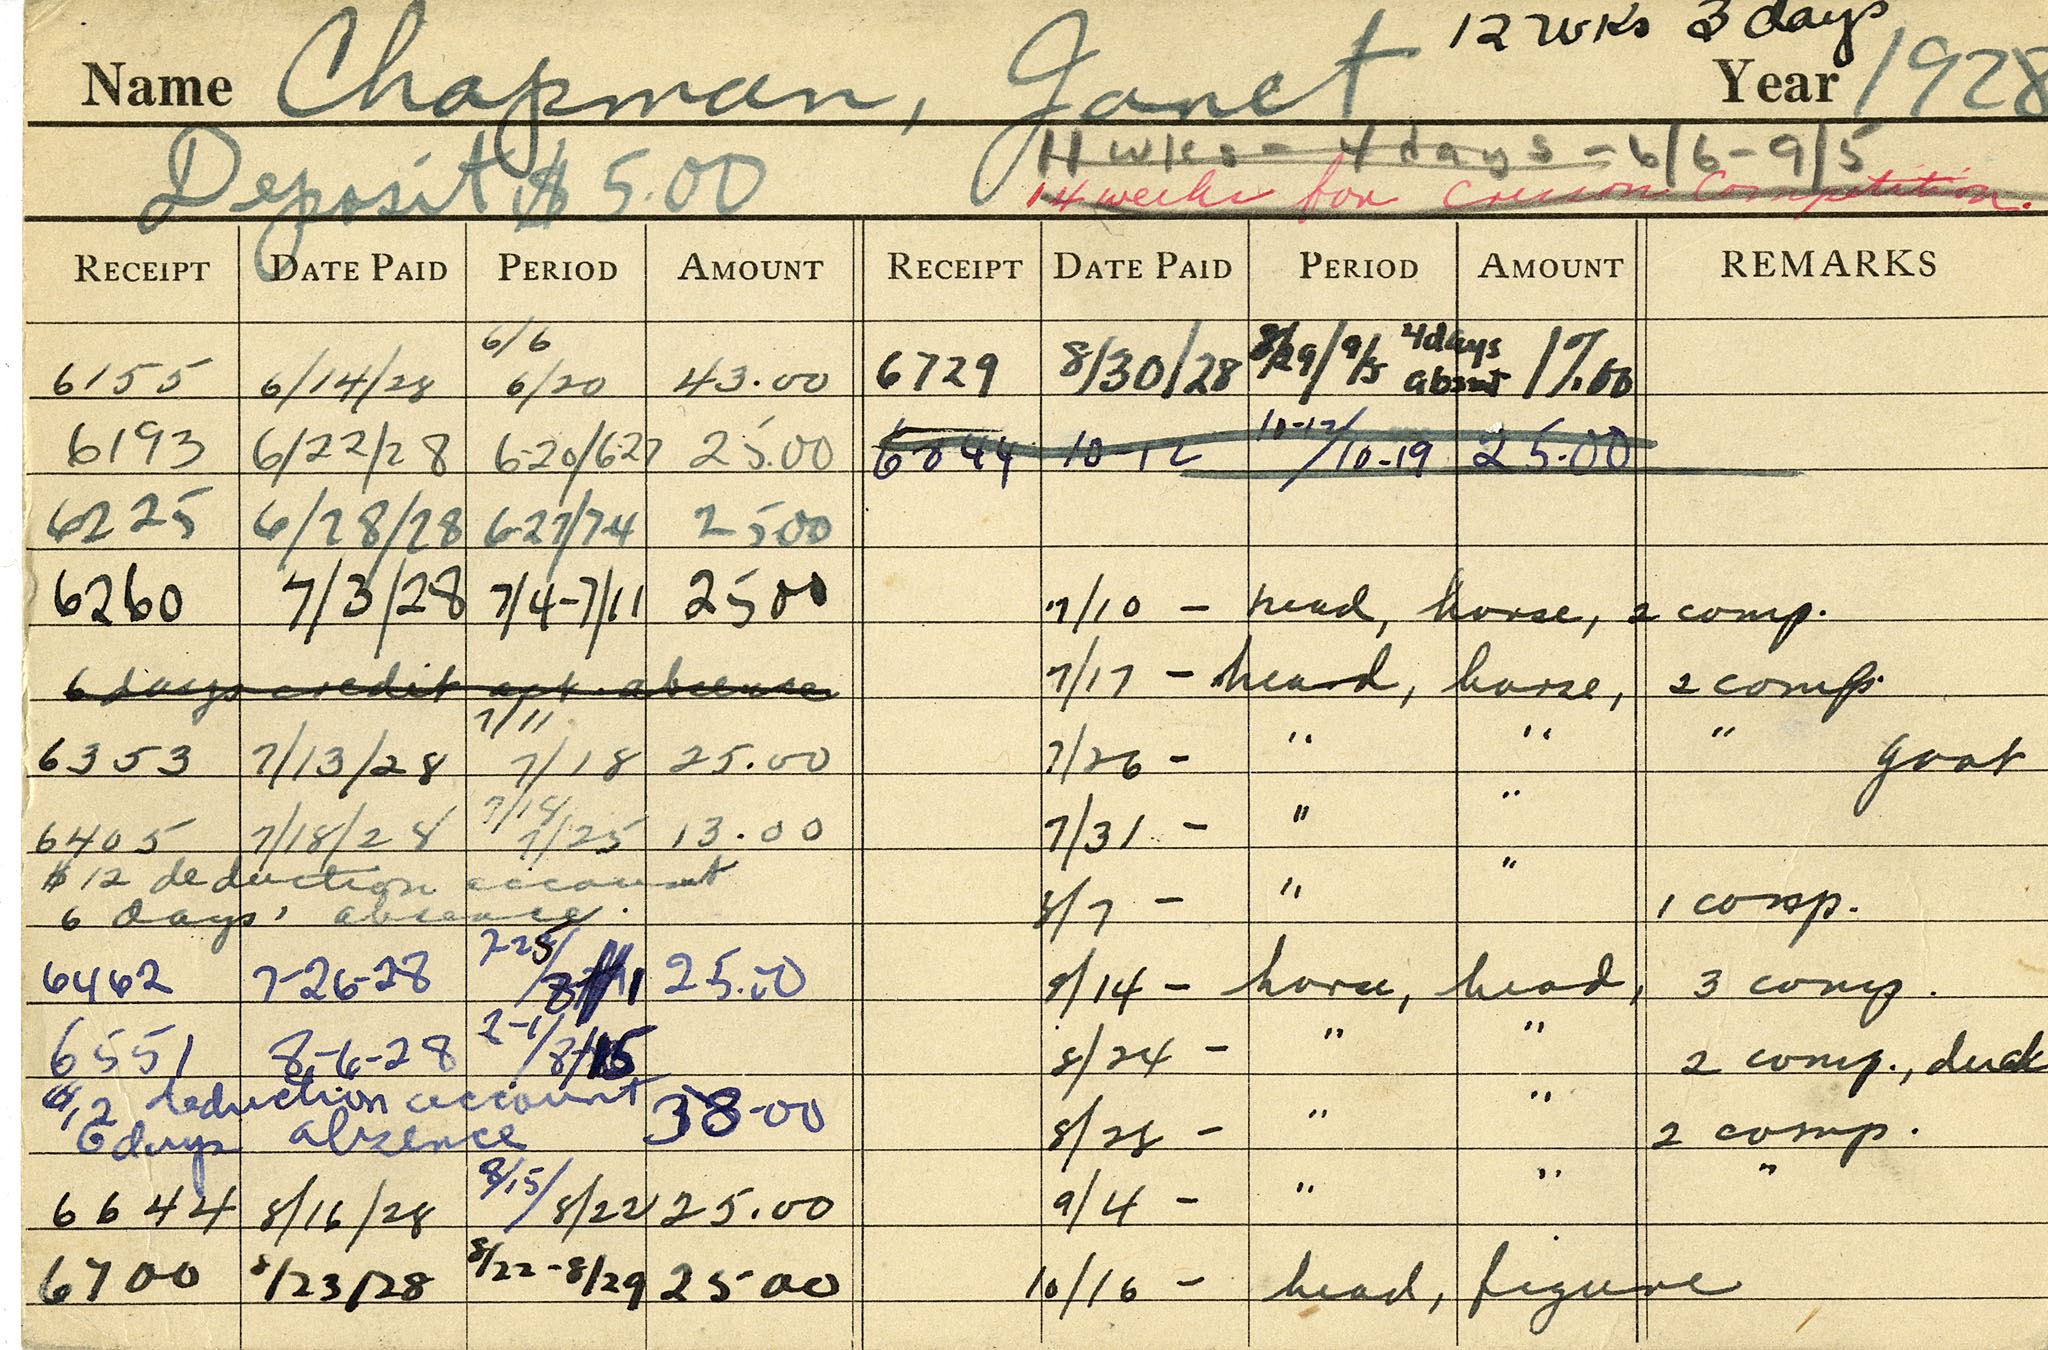 12 wks 3 days
Name Chapman, Janet Year 1928
Deposit $5.00
11 wks - 4 days - 6/6-9/5
14 weeks for Cresson Competition.
RECEIPT DATE PAID PERIOD AMOUNT RECEIPT DATE PAID PERIOD AMOUNT REMARKS
6155 6/14/28 6/6 6/20 43.00 6729 8/30/28 8/29/9/5 4 days absent 17.00
6193 6/22/28 6-20/6-27 25.00 6844 10-12 10-12/10-19 25.00
6225 6/28/28 6-27/7-4 25 00
6260 7/3/28 7/4-7/11 25 00 7/10 - head, horse, 2 comp.
6 days credit act. absence 7/17 - head, horse, 2 comps.
6353 7/13/28 7/11 7/18 25.00 7/26 - " " " goat
6405 7/18/28 7/18 7/25 13.00 7/31 - " "
$12 deduction account
6 days' absence. 8/7 - " " 1 comp.
6462 7-26-28 7-25/8-1 25.00 9/14 - horse, head, 3 comp.
6551 8-6-28 8-1/8/15 8/24 - " " 2 comp., duck
$12 deduction account
6 days absence 38.00 8/28 - " " 2 comp.
6644 8/16/28 8/15/8/22 25.00 9/4 - " " "
6700 8/23/28 8/22-8/29 25 00 10/16 - head, figure